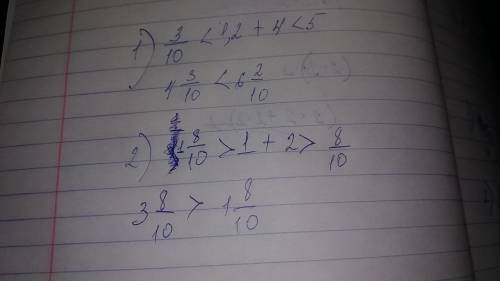 1) 3/10 < 1,2 + 4 < 5
4 3/10 < 6 2/10
2) 1 8/10 > 1 + 2 > 8/10
3 8/10 > 1 8/10